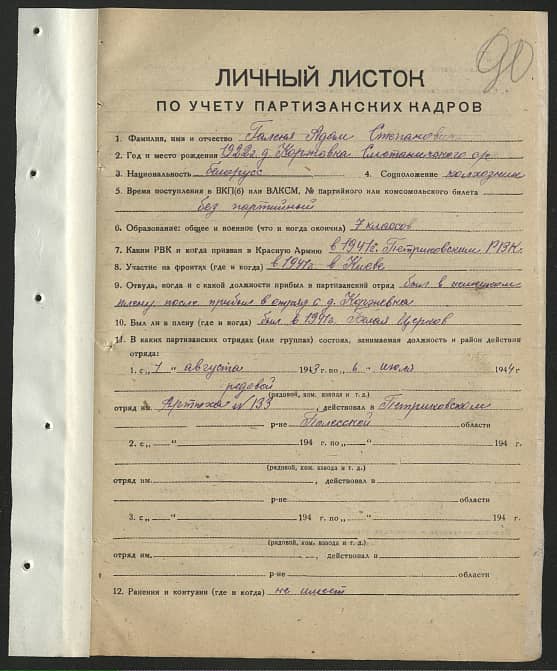 90
ЛИЧНЫЙ ЛИСТОК
ПО УЧЕТУ ПАРТИЗАНСКИХ КАДРОВ
1. Фамилия, имя и отчество Галеня Адам Степанович
2. Год и место рождения 1922г. д. Коржовка
3. Национальность белорусс 4. Соцположение колхозник
5. Время поступления в ВКП(б) или ВЛКСМ, № партийного или комсомольского билета
без партийный
6. Образование: общее и военное (что и когда окончил) 7 классов
7. Каким РВК и когда призван в Красную Армию в 1941г. Петриковским РВК.
8. Участие на фронтах (где и когда) в 1941г. в Киеве
9. Откуда, когда и с какой должности прибыл в партизанский отряд был в немецком
плену, после прибыл в отряд с д. Коржевка
10. Был ли в плену (где и когда) был в 1941г. Белая Церков
11. В каких партизанских отрядах (или группах) состоял, занимаемая должность и район действия
отряда:
1. с „ 1 “ августа 1943 г. по „ 6 “ июля 1944 г.
редовой
(рядовой, ком. взвода и т. д.)
отряд им. № 133, действовал в Петриковском
р-не Полесской области
2. с „ “ 194 г. по „ “ 194 г.
(рядовой, ком. взвода и т. д.)
отряд им. , действовал в
р-не области
3. с „ “ 194 г. по „ “ 194 г.
(рядовой, ком. взвода и т. д.)
отряд им. , действовал в
р-не области
12. Ранения и контузии (где и когда) не имеет